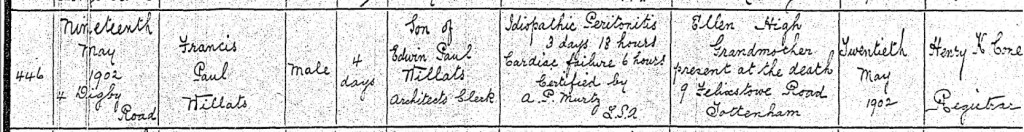 446
Nineteenth
May
1902
4 Digby
Road
Francis
Paul
Willats
Male
4
days
Son of
Edwin Paul
Willats
Architects Clerk
Idiopathic Peritonitis
3 days 18 hours
Cardiac failure 6 hours
Certified by
A. P. Murtz
L.S.A
Ellen High
Grandmother
present at the death
9 Felixstowe Road
Tottenham
Twentieth
May
1902
Henry K Cone
Registrar